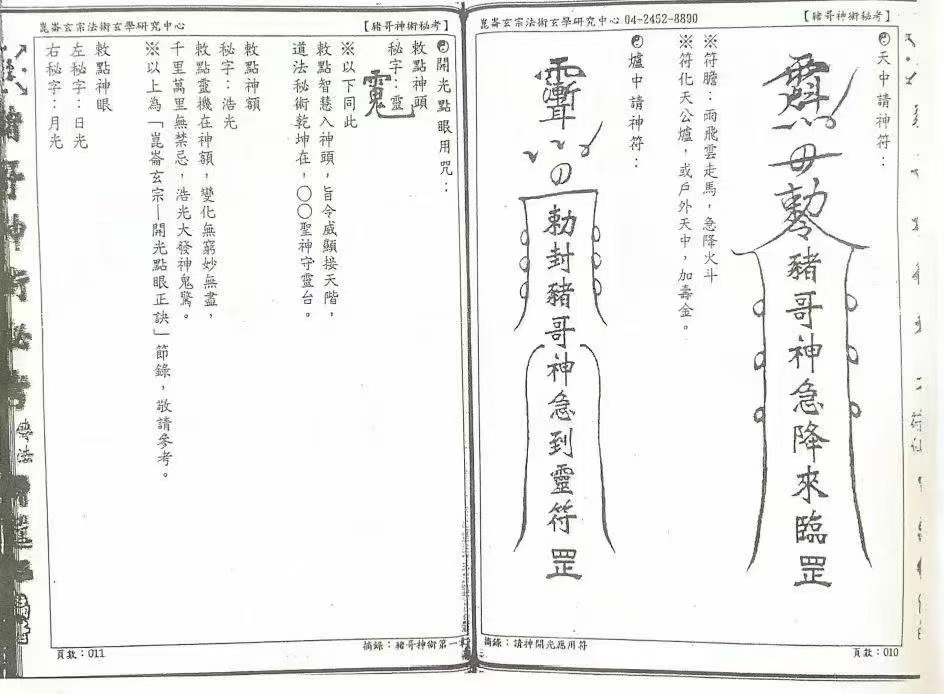 崑崙玄宗法術玄學研究中心 04-2452-8890
【豬哥神術秘考】
天中請神符：
敕令豬哥神急降來臨罡
※符膽：雨飛雲走馬，急降火斗
※符化天公爐，或戶外天中，加壽金。
爐中請神符：
勅封豬哥神急到靈符罡
摘錄：請神開光應用符
頁數：010
崑崙玄宗法術玄學研究中心
【豬哥神術秘考】
開光點眼用咒：
敕點神頭
秘字：靈
※以下同此
敕點智慧入神頭，旨令威顯接天階，
道法秘術乾坤在，〇〇聖神守靈台。
敕點神額
秘字：浩光
敕點靈機在神額，變化無窮妙無盡，
千里萬里無禁忌，浩光大發神鬼驚。
※以上為「崑崙玄宗—開光點眼正訣」節錄，敬請參考。
敕點神眼
左秘字：日光
右秘字：月光
摘錄：豬哥神術第一
頁數：011